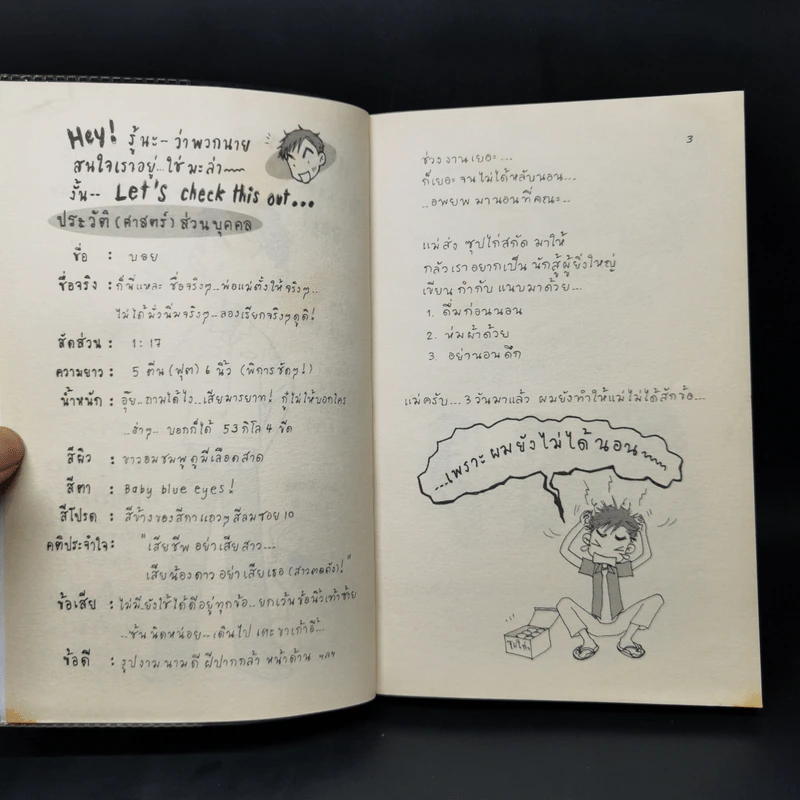 Hey! รู้นะ-- ว่าพวกนาย
สนใจเราอยู่...ใช่มะล่า~~~
งั้น-- Let's check this out...
ประวัติ (ศาสตร์) ส่วนบุคคล
ชื่อ : บอย
ชื่อจริง : ก็นี่แหละ ชื่อจริงๆ...พ่อแม่ตั้งให้จริงๆ...
ไม่ได้มั่วนิ่มจริงๆ...ลองเรียกจริงๆดูดิ!
สัดส่วน : 1:17
ความยาว : 5 ตีน (ฟุต) 6 นิ้ว (พิการชัดๆ!)
น้ำหนัก : อุ๊ย...ถามได้ไง...เสียมารยาท! กูไม่ให้บอกใคร
...ฮ่าๆ... บอกก็ได้ 53 กิโล 4 ขีด
สีผิว : ขาวอมชมพู ดูมีเลือดสาด
สีตา : Baby blue eyes!
สีโปรด : สีข้างของสีกาแถวๆ สีลมซอย 10
คติประจำใจ : "เสียชีพ อย่าเสียสาว...
เสียน้องดาว อย่าเสียเธอ (สาวตลอด)!"
ข้อเสีย : ไม่มี..ยังใช้ได้ดีอยู่ทุกข้อ...ยกเว้นข้อนิ้วเท้าซ้าย
...ซ้นนิดหน่อย...เดินไป เตะขาเก้าอี้
ข้อดี : รูปงาม นามดี ฝีปากกล้า หน้าด้าน ฯลฯ
3
ช่วงงานเยอะ...
ก็เยอะจนไม่ได้หลับนอน...
..อพยพ มานอนที่คณะ..
แม่ส่ง ซุปไก่สกัด มาให้
กลัวเราอยากเป็น นักสู้ผู้ยิ่งใหญ่
เขียน กำกับ แนบมาด้วย...
1. ดื่มก่อนนอน
2. ห่มผ้าด้วย
3. อย่านอนดึก
แม่ครับ... 3 วันมาแล้ว ผมยังทำให้แม่ไม่ได้สักข้อ...
...เพราะผมยังไม่ได้นอน~~~
ซุปไก่